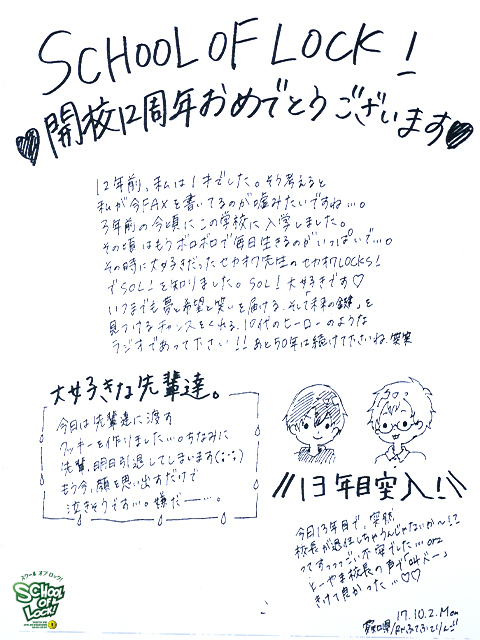 SCHOOL OF LOCK!
開校12周年おめでとうございます
12年前、私は1才でした。そう考えると
私が今FAXを書いてるのが嘘みたいですね…。
3年前の今頃にこの学校に入学しました。
その頃はもうボロボロで毎日生きるのがいっぱいで…。
その時に大好きだったセカオワ先生のセカオワLOCKS!
でSOL!を知りました。SOL!大好きです♡
いつまでも夢と希望と笑いを届ける、そして「未来の鍵」を
見つけるチャンスをくれる、10代のヒーローのような
ラジオであって下さい!!あと50年は続けて下さいね、笑笑
大好きな先輩達。
今日は先輩達に渡す
クッキーを作りました…。ちなみに
先輩、明日引退してしまいます(;;)
もう今、顔を思い出すだけで
泣きそうです…。嫌だ――。
13年目突入!
今日13年目で、突然
校長が退任しちゃうんじゃないか〜!?
ってすっっっごい不安でした…orz
とーやま校長の声で「叫べー」
きけて良かった…♡♡
17.10.2.Mon
愛知県/
スクール オブ ロック!
SCHOOL OF LOCK!